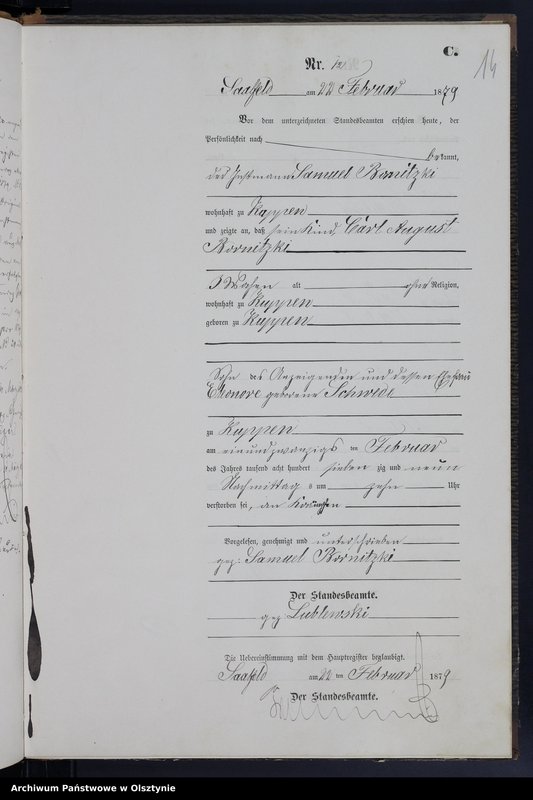 C.
14
Nr. 12
Saalfeld am 22 Februar 1879
Vor dem unterzeichneten Standesbeamten erschien heute, der
Persönlichkeit nach
bekannt,
der Instmann Samuel Bornitzki
wohnhaft zu Kuppen
und zeigte an, daß sein Kind, Carl August
Bornitzki
3 Wochen alt Religion,
wohnhaft zu Kuppen
geboren zu Kuppen
Sohn des Anzeigenden und dessen Ehefrau
Eleonore geborene Schwede
zu Kuppen
am einundzwanzigsten Februar
des Jahres tausend acht hundert siebenzig und neun
Nachmittags um zehn Uhr
verstorben sei, an
Vorgelesen, genehmigt und unterschrieben
gez: Samuel Bornitzki
Der Standesbeamte.
gez Lublewski
Die Uebereinstimmung mit dem Hauptregister beglaubigt.
Saalfeld am 22 ten Februar 1879
Der Standesbeamte.
Archiwum Państwowe w Olsztynie